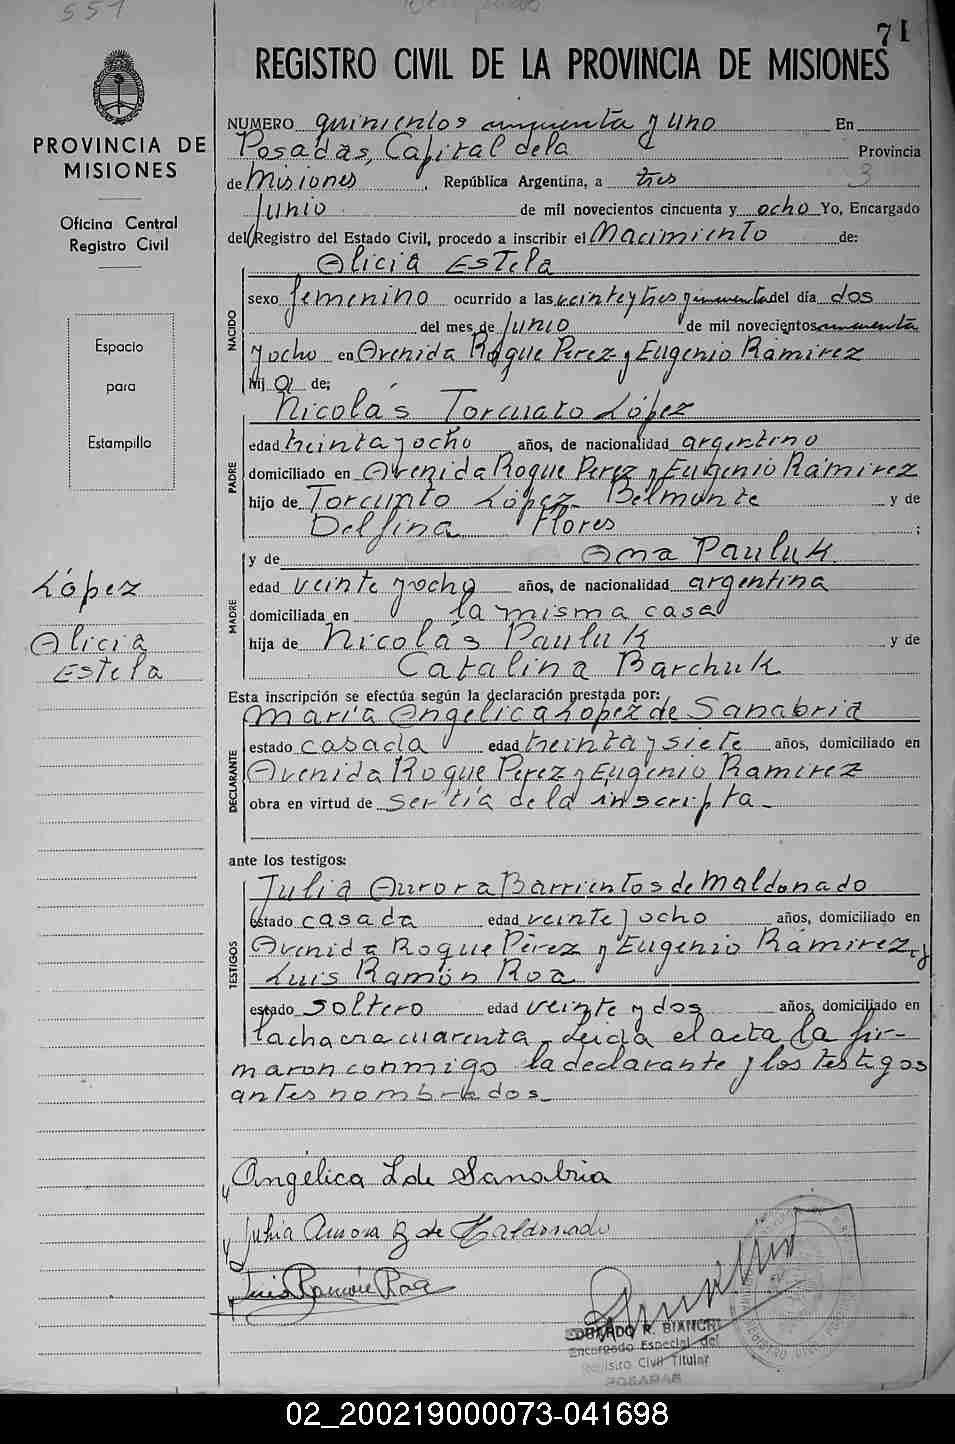 551
71
REGISTRO CIVIL DE LA PROVINCIA DE MISIONES
PROVINCIA DE
MISIONES
Oficina Central
Registro Civil
Espacio
para
Estampilla
López
Alicia
Estela
NUMERO quinientos cincuenta y uno En
Posadas, Capital de la Provincia
de Misiones, República Argentina, a tres 3
Junio de mil novecientos cincuenta y ocho Yo, Encargado
del Registro del Estado Civil, procedo a inscribir el Nacimiento de:
NACIDO
Alicia Estela
sexo femenino ocurrido a las veinte y tres y cincuenta del día dos
del mes de Junio de mil novecientos cincuenta
y ocho en Avenida Roque Perez y Eugenio Ramirez
hij a de:
PADRE
Nicolás Torcuato López
edad treinta y ocho años, de nacionalidad argentino
domiciliado en Avenida Roque Perez y Eugenio Rámirez
hijo de Torcunto López Belmonte y de
Delfina Flores ;
MADRE
y de Ana Pauluk
edad veinte y ocho años, de nacionalidad argentina
domiciliada en la misma casa
hija de Nicolás Pauluk y de
Catalina Barchuk
Esta inscripción se efectúa según la declaración prestada por:
DECLARANTE
María Angélica López de Sanabria
estado casada edad treinta y siete años, domiciliado en
Avenida Roque Perez y Eugenio Ramirez
obra en virtud de ser tía de la inscripta-
ante los testigos:
TESTIGOS
Julia Aurora Barrientos de Maldonado
estado casada edad veinte y ocho años, domiciliado en
Avenida Roque Pérez y Eugenio Rámirez, y
Luis Ramón Roa
estado soltero edad veinte y dos años, domiciliado en
la chacra cuarenta, Leida el acta la fir-
maron conmigo la declarante y los testigos
antes nombrados.-
Angélica L de Sanabria
Julia Aurora B de Maldonado
Luis Ramón Roa
EDUARDO R. BIANCHI
Encargado Especial del
Registro Civil Titular
POSADAS
02_200219000073-041698